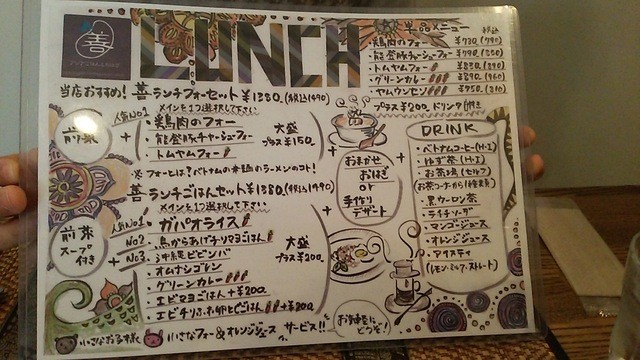 善
LUNCH
単品メニュー
税込
・鶏肉のフォー ¥730(790)
・能登豚チャーシューフォー ¥790(850)
・トムヤムフォー ¥830(890)
・グリーンカレー ¥890(960)
・ヤムウンセン ¥950(310)
プラス¥200 ドリンク付き
当店おすすめ! 善 ランチフォーセット ¥1380.(税込1490)
メインを1つ選択して下さい
前菜
+
人気No1
・鶏肉のフォー
・能登豚チャーシューフォー
・トムヤムフォー
大盛
プラス¥150
※ フォーとは?ベトナムの本麺のラーメンのコト!
善 ランチごはんセット ¥1380(税込1490)
メインを1つ選択して下さい
前菜
スープ
付き
+
人気No1
・ガパオライス
No2
・鳥からあげチリマヨごはん
No3
・沖縄ビビンバ
・オムナシゴレン
・グリーンカレー
・エビマヨごはん +¥200
・エビチリふわ卵とじごはん +¥200
大盛
プラス¥200
+
おまかせ
おはぎ
or
手作り
デザート
+
DRINK
・ベトナムコーヒー(H・I)
・ゆず茶(H・I)
・お茶3種(セルフ)
(お茶コーナーから1種選択)
・黒ウーロン茶
・ライチソーダ
・マンゴージュース
・オレンジジュース
・アイスティ
(レモン・ミルク・ストレート)
小さなお子様
小さなフォー&オレンジジュース サービス!!
お会計に
どうぞ!